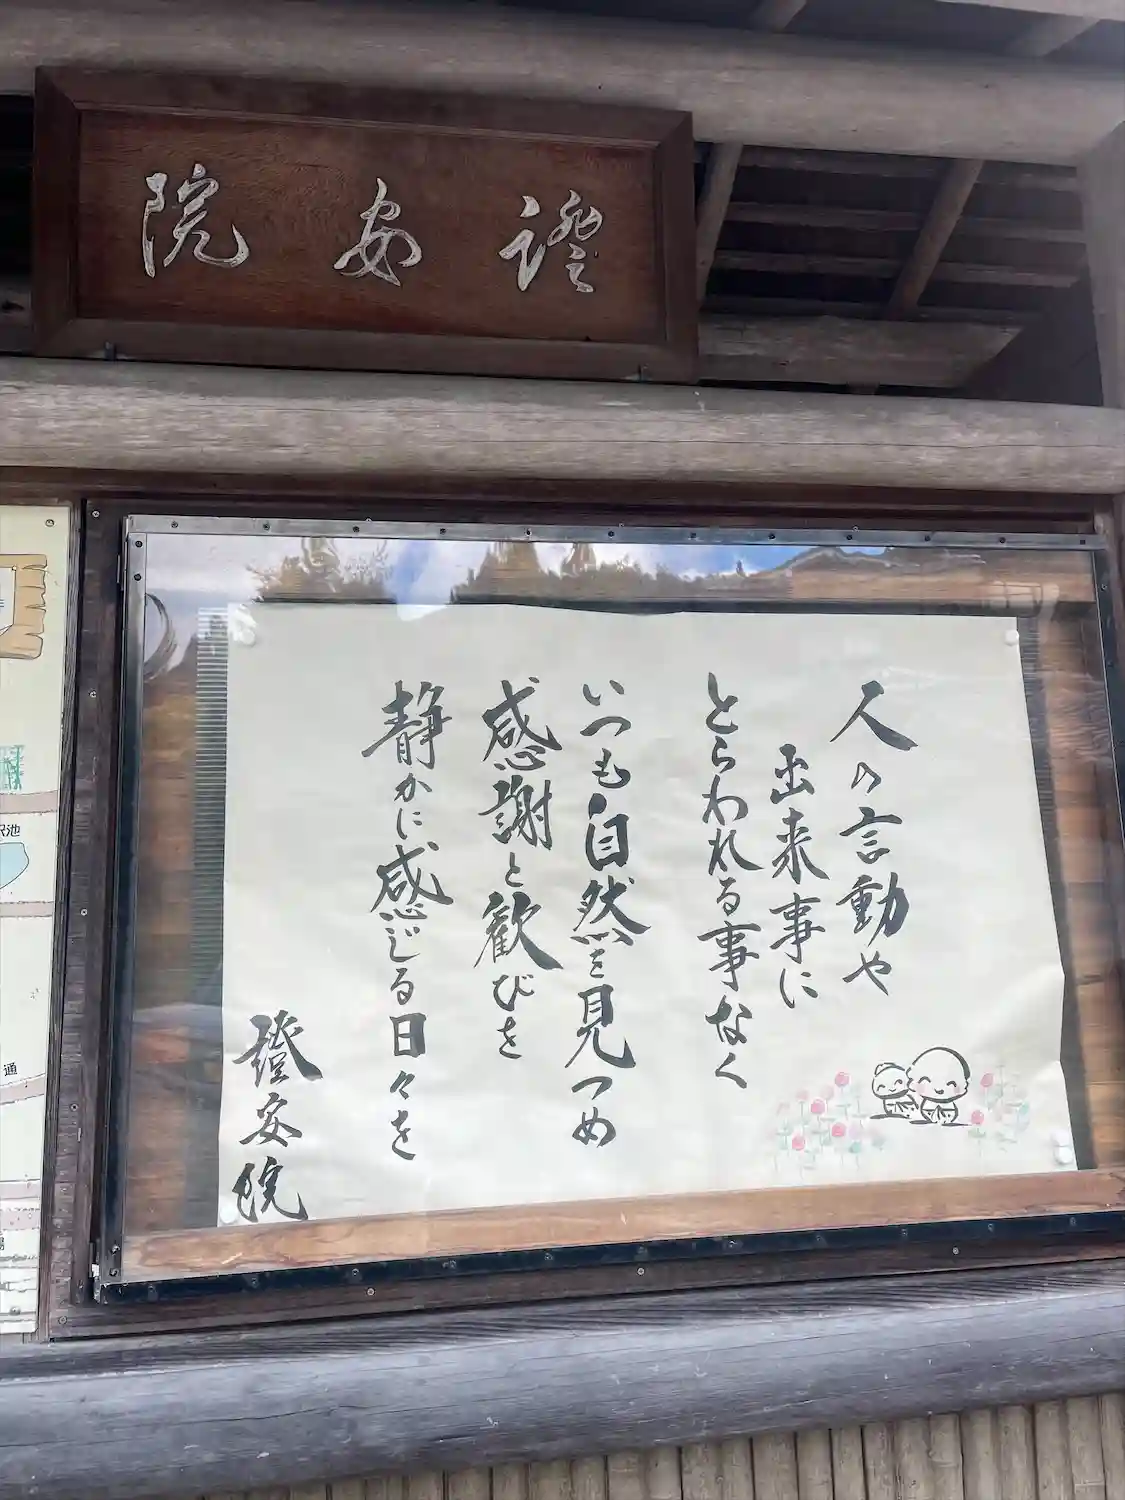 證安院
人の言動や
出来事に
とらわれる事なく
いつも自然を見つめ
感謝と歓びを
静かに感じる日々を
證安院
沢池
通
場